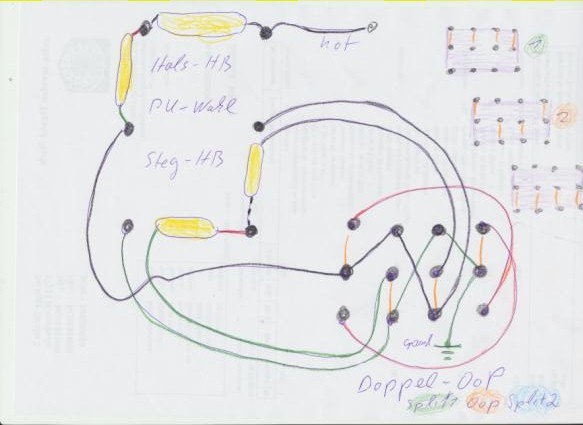 hot
Hals-HB
PU-Wahl
Steg-HB
1
2
Doppel-OOP
Split1 Oop Split2